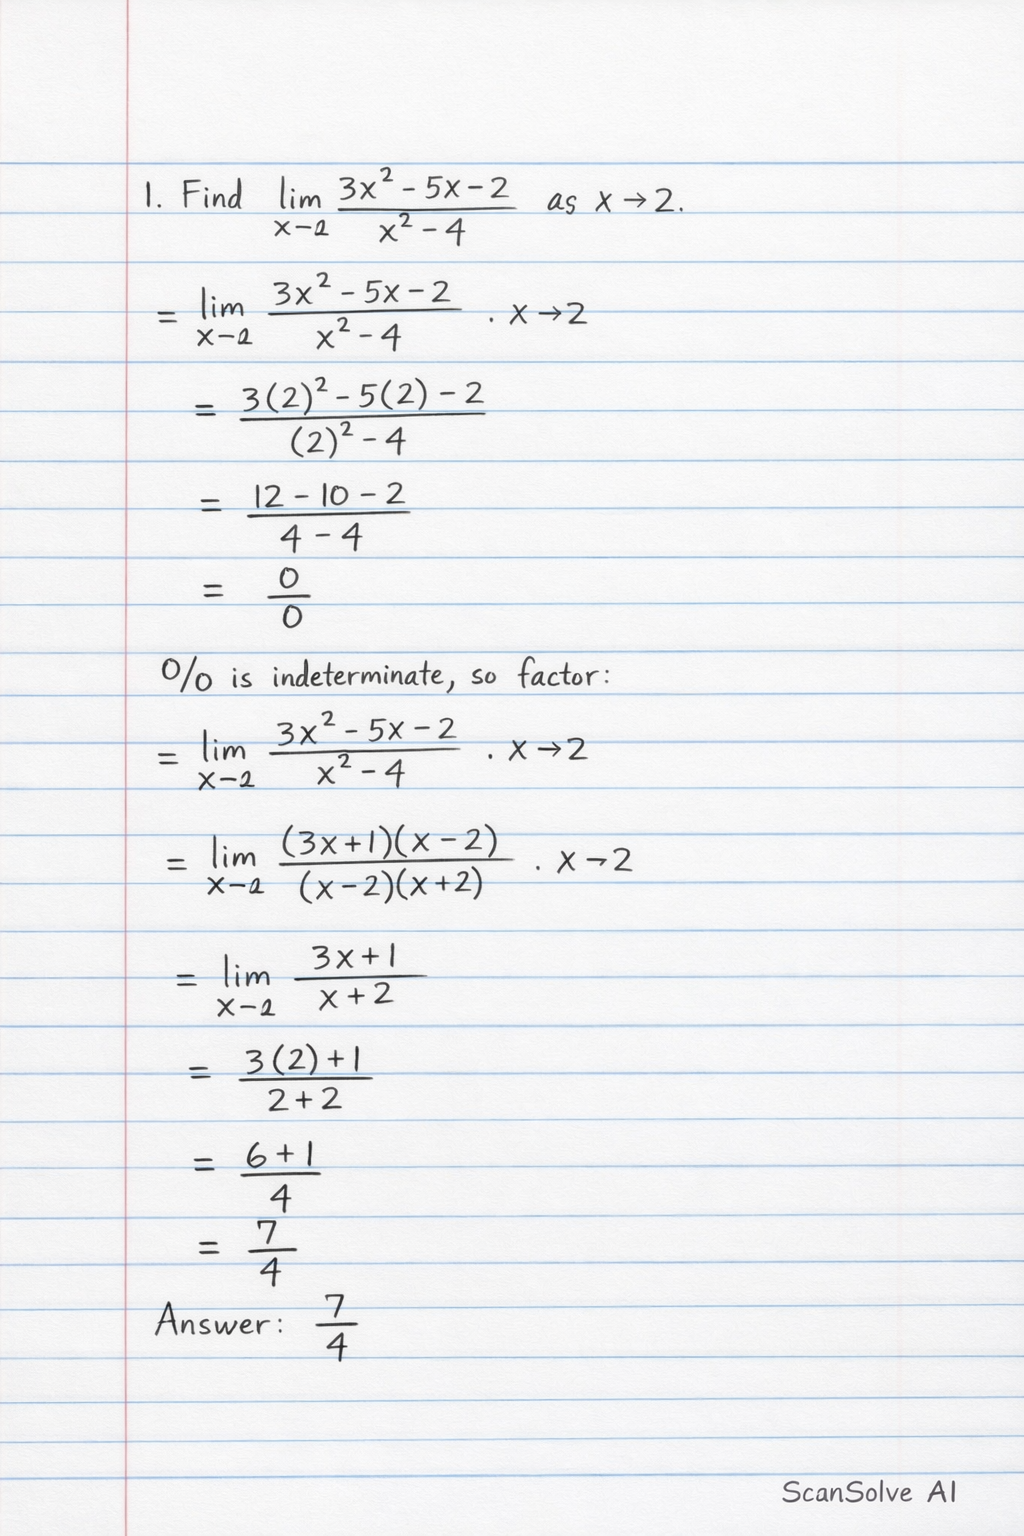 1. Find lim x-2 (3x² - 5x - 2)/(x² - 4) as x → 2.
= lim x-2 (3x² - 5x - 2)/(x² - 4) . x → 2
= (3(2)² - 5(2) - 2)/((2)² - 4)
= (12 - 10 - 2)/(4 - 4)
= 0/0
0/0 is indeterminate, so factor:
= lim x-2 (3x² - 5x - 2)/(x² - 4) . x → 2
= lim x-2 ((3x+1)(x-2))/((x-2)(x+2)) . x → 2
= lim x-2 (3x+1)/(x+2)
= (3(2)+1)/(2+2)
= (6+1)/4
= 7/4
Answer: 7/4
ScanSolve AI